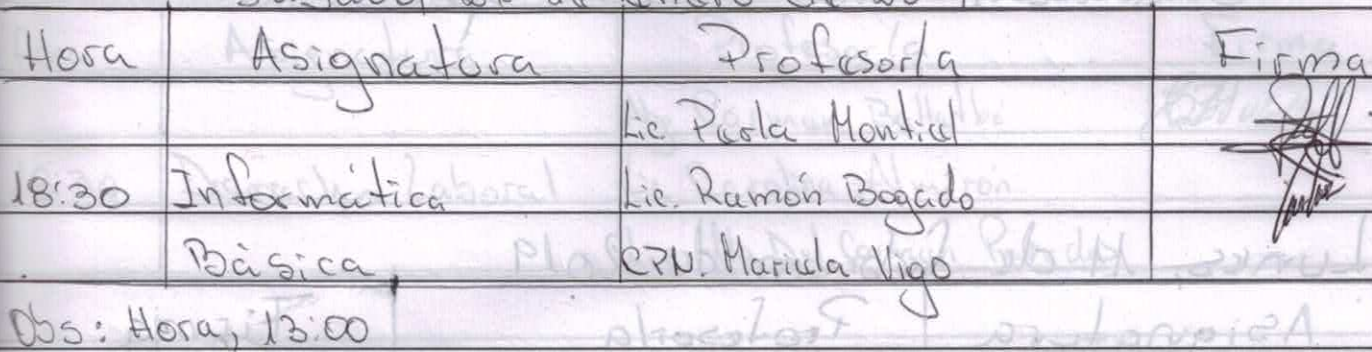 Hora Asignatura Profesor/a Firma
Lic Parla Montiel
18:30 Informática Lic. Ramón Bogado
Básica CPN. Mariela Vigo
Obs: Hora, 13:00